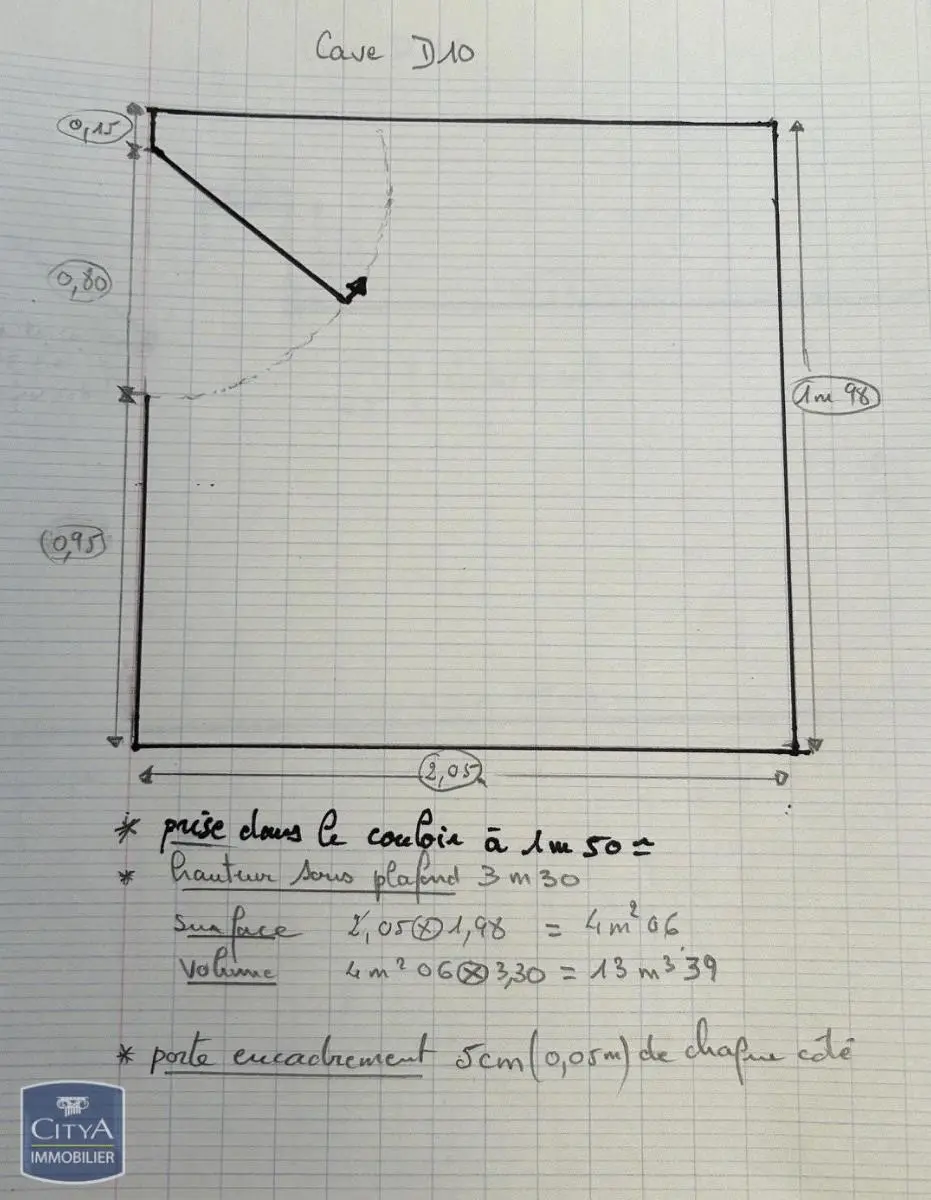 Cave D10
0,15
0,80
1m 98
0,95
2,05
* prise dans le couloir à 1m 50 =
* hauteur sous plafond 3m30
Surface 2,05 ⊗ 1,98 = 4m² 06
Volume 4m² 06 ⊗ 3,30 = 13 m³ 39
* porte encadrement 5cm (0,05m) de chaque côté
CITYA
IMMOBILIER